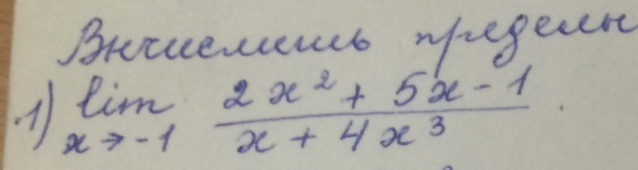 Вычислить пределы
1) lim x→-1 (2x² + 5x - 1)/(x + 4x³)